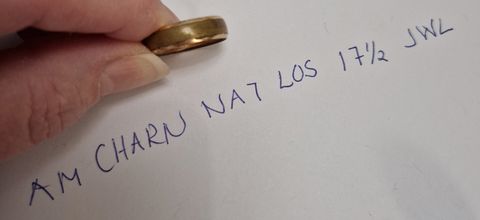 AM CHARN NA7 LOS 17½ JWL